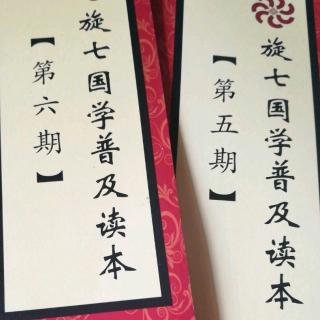 旋七国学普及读本
【第六期】
旋七国学普及读本
【第五期】